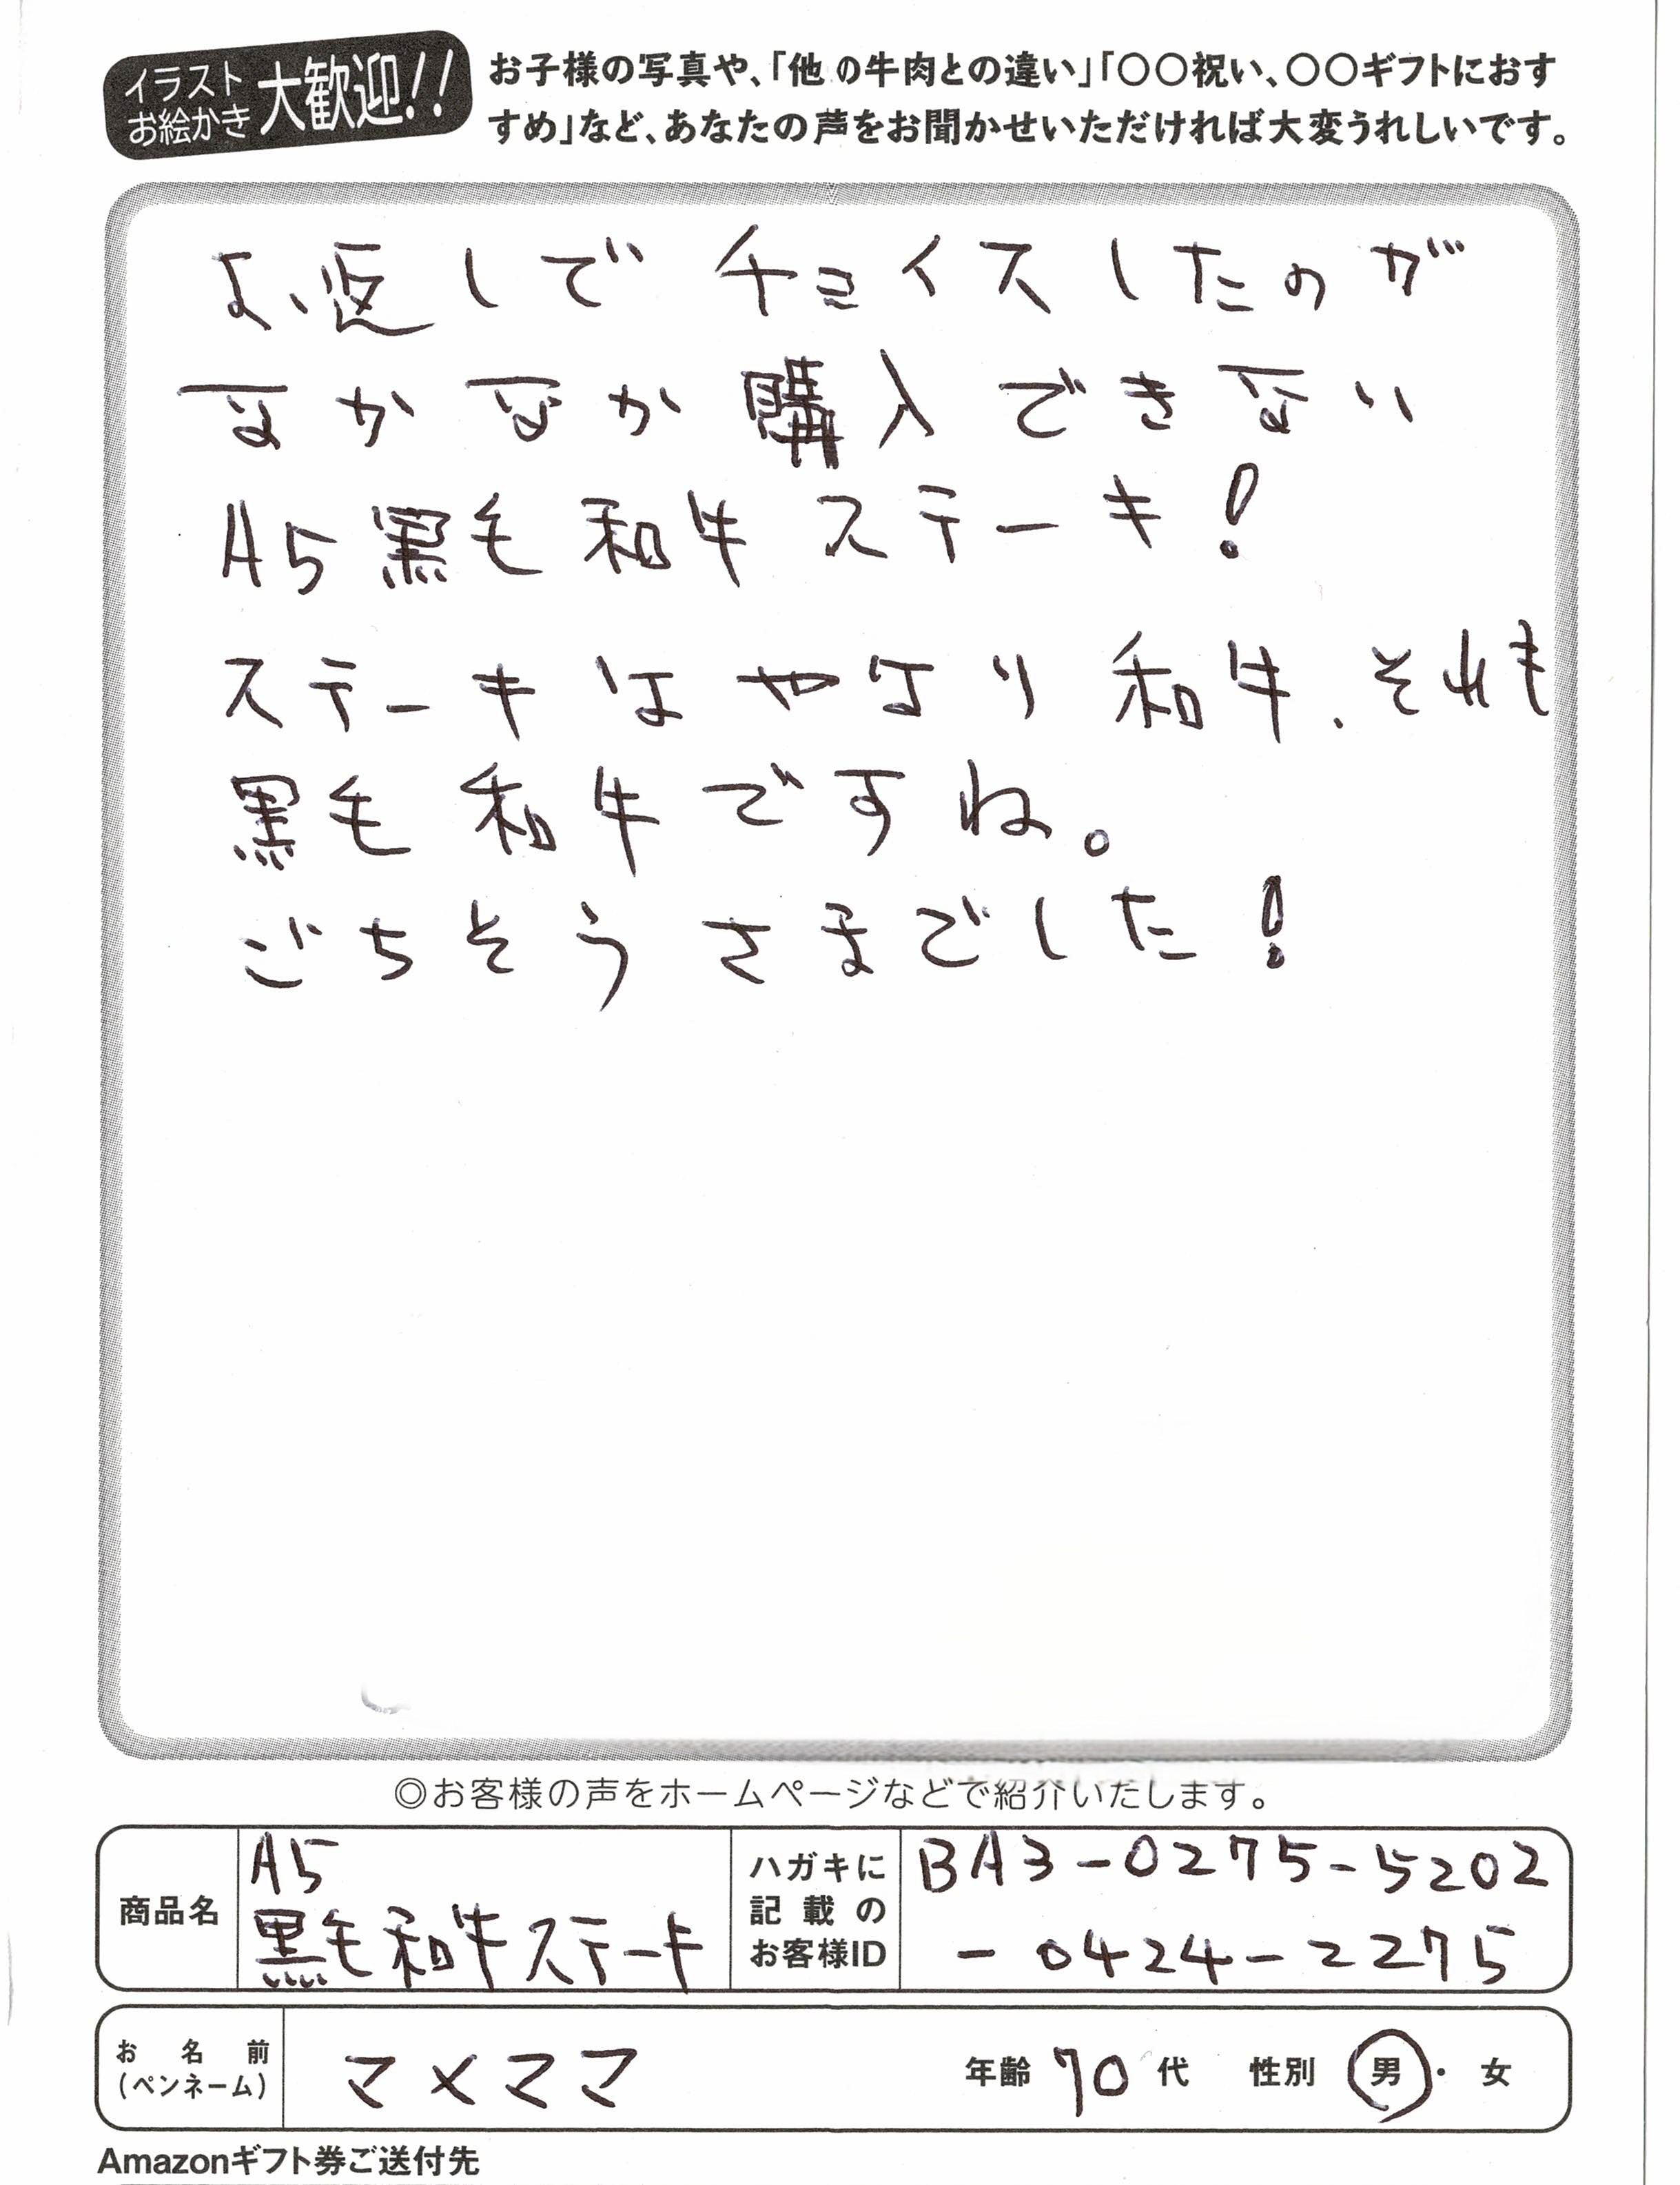 イラスト
お絵かき
大歓迎!!
お子様の写真や、「他の牛肉との違い」「〇〇祝い、〇〇ギフトにおす
すめ」など、あなたの声をお聞かせいただければ大変うれしいです。
お返しでチョイスしたのが
なかなか購入できない
A5黒毛和牛ステーキ!
ステーキはやはり和牛、それも
黒毛和牛ですね。
ごちそうさまでした!
◎お客様の声をホームページなどで紹介いたします。
商品名
A5
黒毛和牛ステーキ
ハガキに
記載の
お客様ID
BA3-0275-5202
-0424-2275
お名前
(ペンネーム)
マメママ
年齢 70代 性別 男・女
Amazonギフト券ご送付先